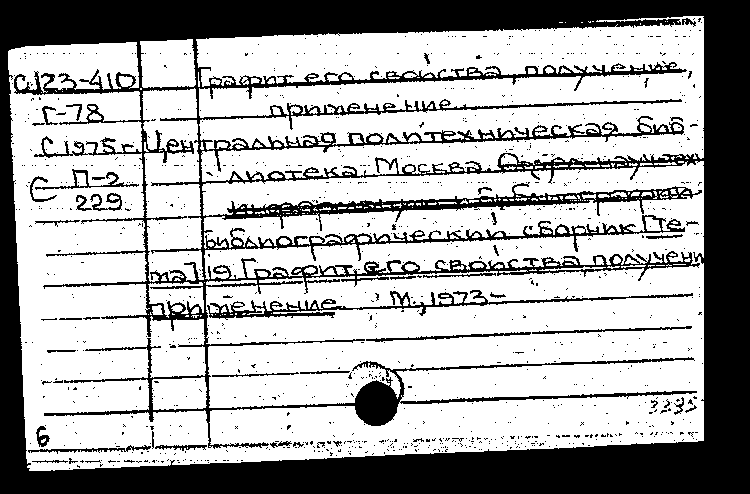 С123-410 Графит, его свойства, получение,
Г-78 применение.
С 1975 г. Центральная политехническая биб-
С П-2 лиотека, Москва. Отдел научтех
229 информации и библиографии
Библиографический сборник [Те-
ма] 19. Графит, его свойства, получени
применение М., 1973-
3235
6